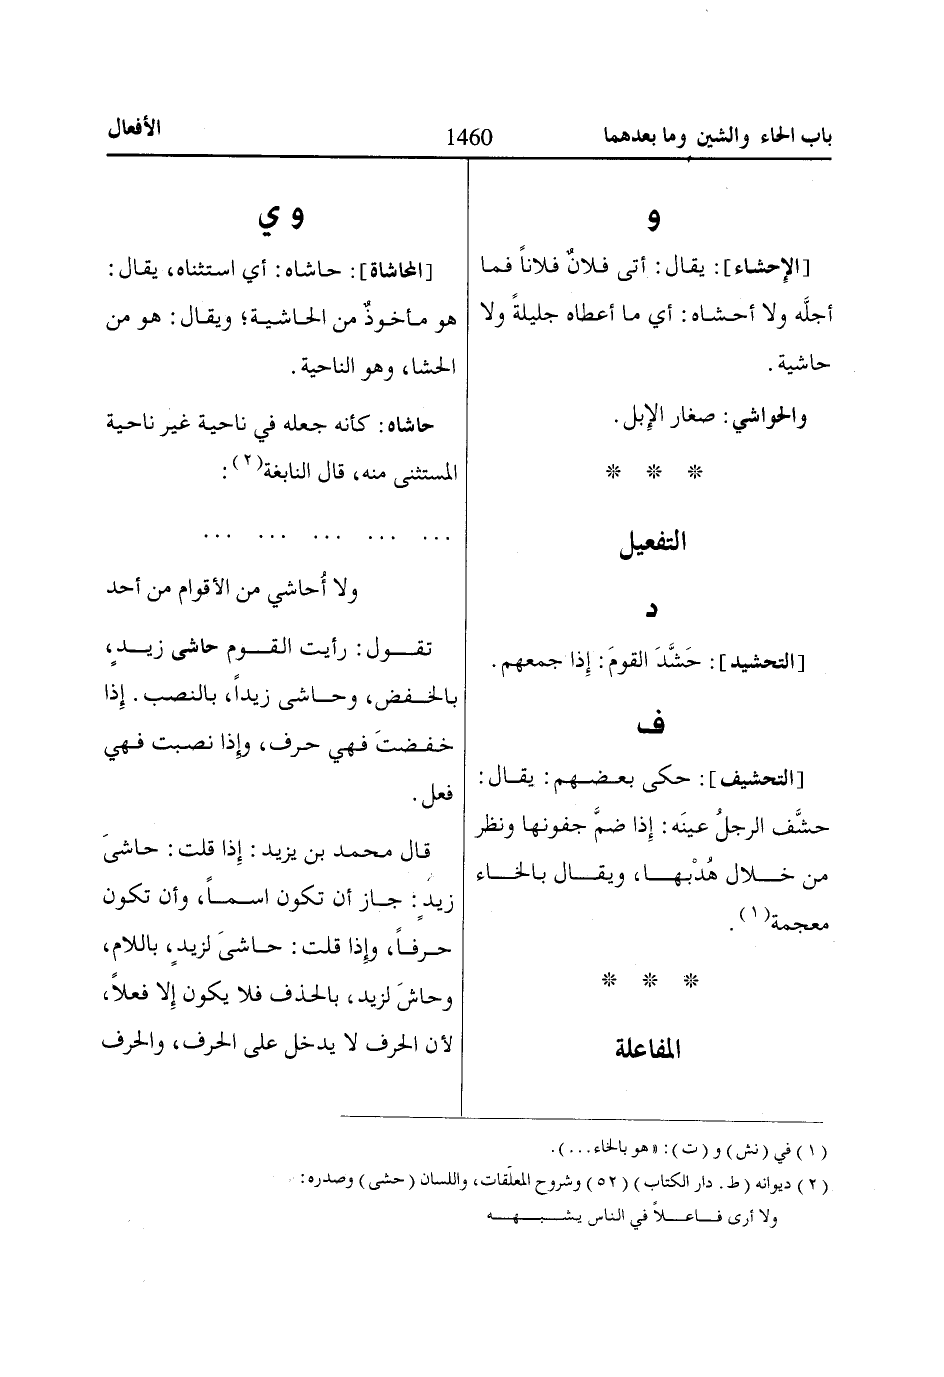 باب الحاء والشين وما بعدهما
1460
الأفعال
و
[الإحشاء]: يقال: أتى فلانٌ فلاناً فما
أجلَّه ولا أحشاه: أي ما أعطاه جليلةً ولا
حاشية.
والحواشي: صغار الإبل.
❊ ❊ ❊
التفعيل
د
[التحشيد]: حَشَّدَ القومَ: إذا جمعهم.
ف
[التحشيف]: حكى بعضهم: يقال:
حشَّف الرجلُ عينَه: إذا ضمَّ جفونها ونظر
من خلال هُدْبها، ويقال بالخاء
معجمة(١).
❊ ❊ ❊
المفاعلة
و ي
[المحاشاة]: حاشاه: أي استثناه، يقال:
هو مأخوذٌ من الحاشية؛ ويقال: هو من
الحشا، وهو الناحية.
حاشاه: كأنه جعله في ناحية غير ناحية
المستثنى منه، قال النابغة(٢):
... ... ... ... ...
ولا أُحاشي من الأقوام من أحد
تقول: رأيت القوم حاشى زيدٍ،
بالخفض، وحاشى زيداً، بالنصب. إذا
خفضتَ فهي حرف، وإذا نصبت فهي
فعل.
قال محمد بن يزيد: إذا قلت: حاشىَ
زيدٍ: جاز أن تكون اسماً، وأن تكون
حرفاً، وإذا قلت: حاشىَ لزيدٍ، باللام،
وحاشَ لزيد، بالحذف فلا يكون إلا فعلاً،
لأن الحرف لا يدخل على الحرف، والحرف
(١) في (نش) و(ت): «هو بالخاء...).
(٢) ديوانه (ط. دار الكتاب) (٥٢) وشروح المعلَّقات، واللسان (حشى) وصدره:
ولا أرى فاعلاً في الناس يشبهه